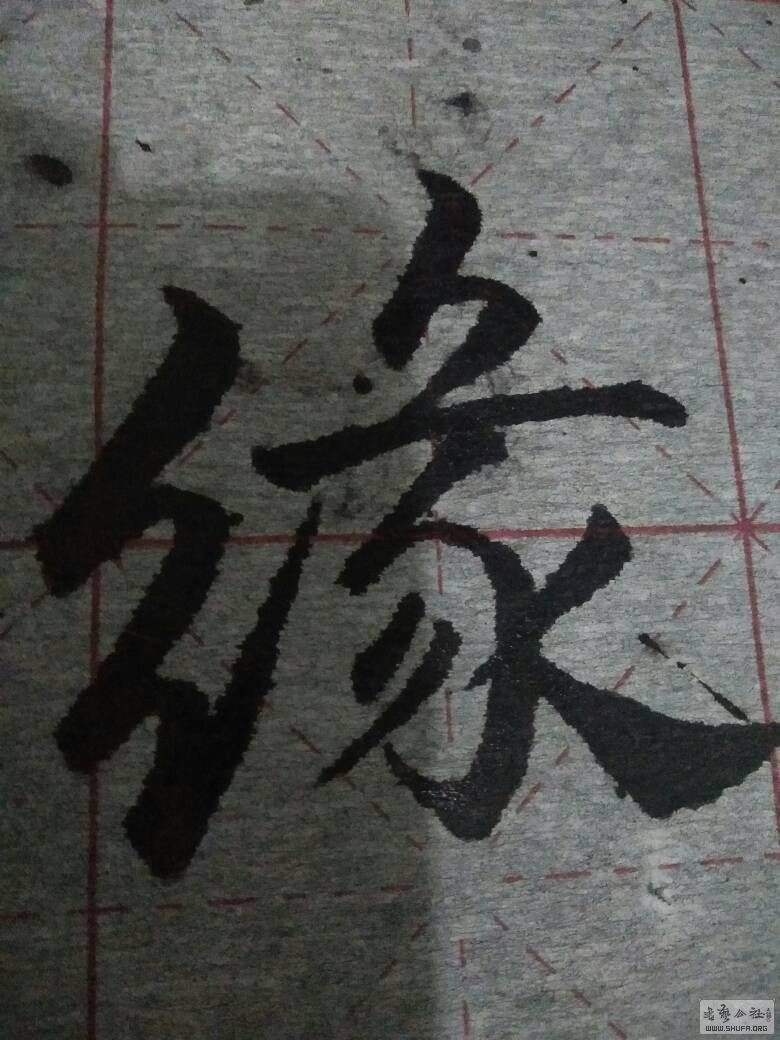 缘
书艺公社
WWW.SHUFA.ORG